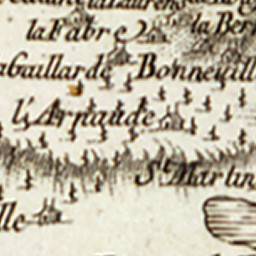 la Fabre
la Ber
Gaillarde Bonneuill
l'Arnaude
St. Martin
lle